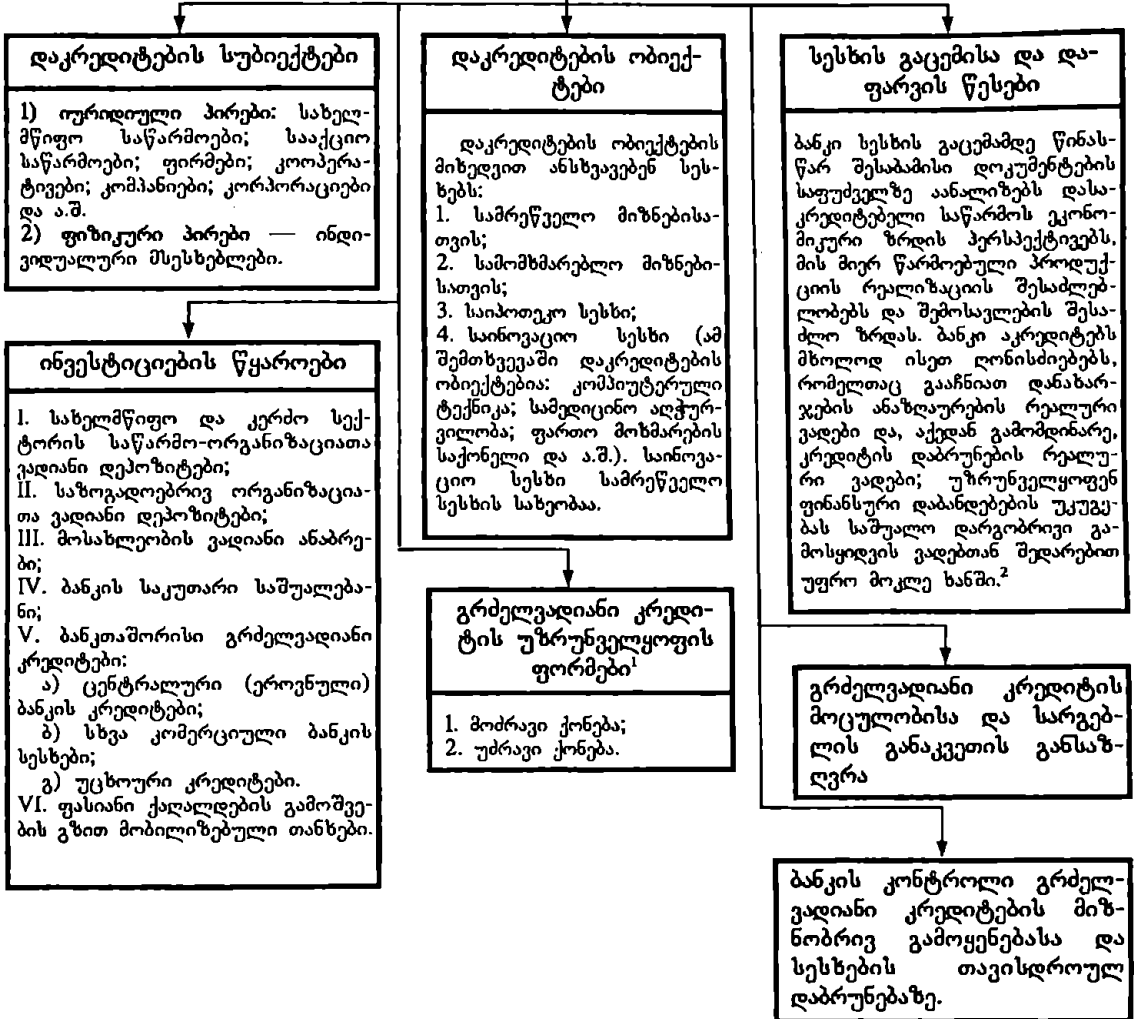 დაკრედიტების სუბიექტები
1) იურიდიული პირები: სახელ-
მწიფო საწარმოები; სააქციო
საწარმოები; ფირმები; კოოპერა-
ტივები; კომპანიები; კორპორაციები
და ა.შ.
2) ფიზიკური პირები — ინდი-
ვიდუალური მსესხებლები.
ინვესტიციების წყაროები
I. სახელმწიფო და კერძო სექ-
ტორის საწარმო-ორგანიზაციათა
ვადიანი დეპოზიტები;
II. საზოგადოებრივ ორგანიზაცია-
თა ვადიანი დეპოზიტები;
III. მოსახლეობის ვადიანი ანაბრე-
ბი;
IV. ბანკის საკუთარი საშუალება-
ნი;
V. ბანკთაშორისი გრძელვადიანი
კრედიტები:
ა) ცენტრალური (ეროვნული)
ბანკის კრედიტები;
ბ) სხვა კომერციული ბანკის
სესხები;
გ) უცხოური კრედიტები.
VI. ფასიანი ქაღალდების გამოშვე-
ბის გზით მობილიზებული თანხები.
დაკრედიტების ობიექ-
ტები
დაკრედიტების ობიექტების
მიხედვით ანსხვავებენ სეს-
ხებს:
1. სამრეწველო მიზნებისა-
თვის;
2. სამომხმარებლო მიზნები-
სათვის;
3. საიპოთეკო სესხი;
4. საინოვაციო სესხი (ამ
შემთხვევაში დაკრედიტების
ობიექტებია: კომპიუტერული
ტექნიკა; სამედიცინო აღჭურ-
ვილობა; ფართო მოხმარების
საქონელი და ა.შ.). საინოვა-
ციო სესხი სამრეწველო
სესხის სახეობაა.
გრძელვადიანი კრედი-
ტის უზრუნველყოფის
ფორმები¹
1. მოძრავი ქონება;
2. უძრავი ქონება.
სესხის გაცემისა და და-
ფარვის წესები
ბანკი სესხის გაცემამდე წინას-
წარ შესაბამისი დოკუმენტების
საფუძველზე აანალიზებს დასა-
კრედიტებელი საწარმოს ეკონო-
მიკური ზრდის პერსპექტივებს,
მის მიერ წარმოებული პროდუქ-
ციის რეალიზაციის შესაძლებ-
ლობებს და შემოსავლების შესა-
ძლო ზრდას. ბანკი აკრედიტებს
მხოლოდ ისეთ ღონისძიებებს,
რომელთაც გააჩნიათ დანახარ-
ჯების ანაზღაურების რეალური
ვადები და, აქედან გამომდინარე,
კრედიტის დაბრუნების რეალუ-
რი ვადები; უზრუნველყოფენ
ფინანსური დაბანდებების უკუგე-
ბას საშუალო დარგობრივი გა-
მოსყიდვის ვადებთან შედარებით
უფრო მოკლე ხანში.²
გრძელვადიანი კრედიტის
მოცულობისა და სარგებ-
ლის განაკვეთის განსაზ-
ღვრა
ბანკის კონტროლი გრძელ-
ვადიანი კრედიტების მიზ-
ნობრივ გამოყენებასა და
სესხების თავისდროულ
დაბრუნებაზე.